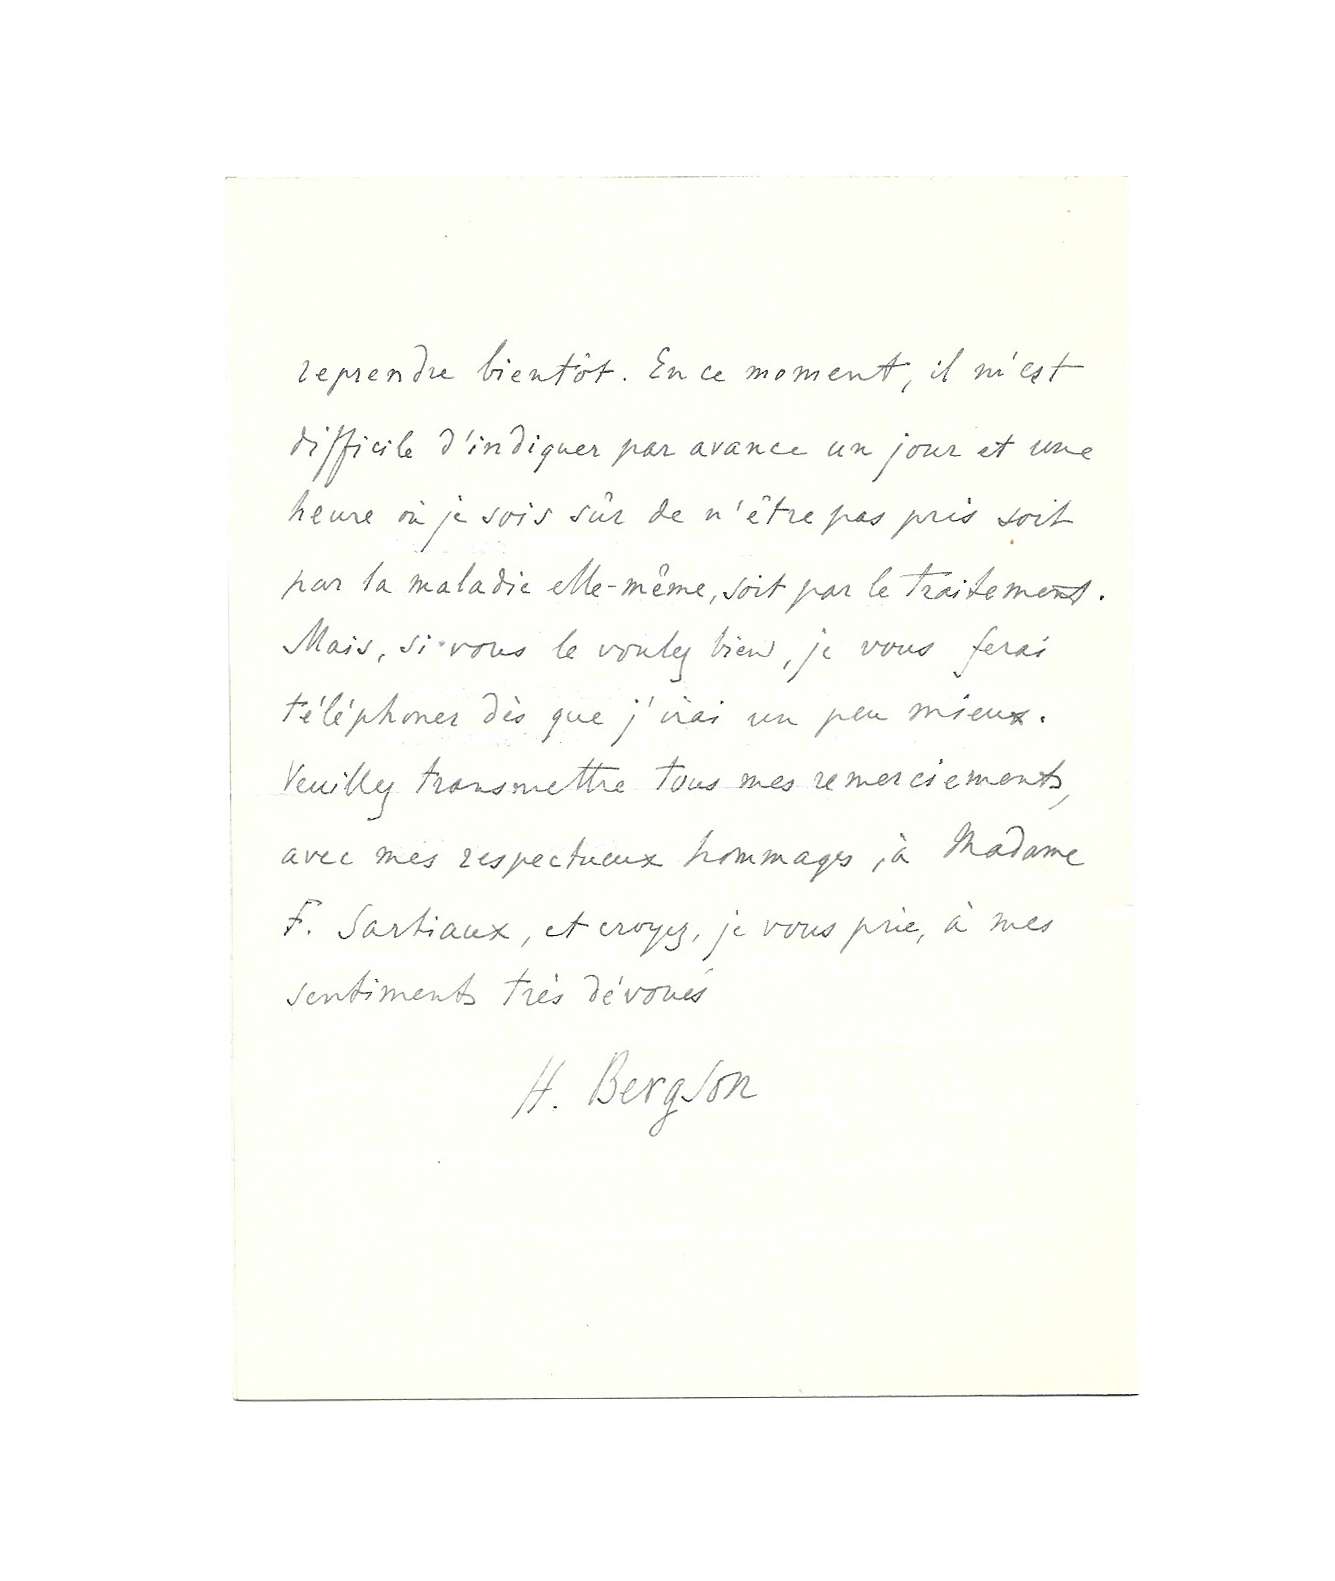 reprendre bientôt. En ce moment, il m'est
difficile d'indiquer par avance un jour et une
heure où je sois sûr de n'être pas pris soit
par la maladie elle-même, soit par le traitement.
Mais, si vous le voulez bien, je vous ferai
téléphoner dès que j'irai un peu mieux.
Veuillez transmettre tous mes remerciements,
avec mes respectueux hommages, à Madame
F. Sartiaux, et croyez, je vous prie, à mes
sentiments très dévoués
H. Bergson